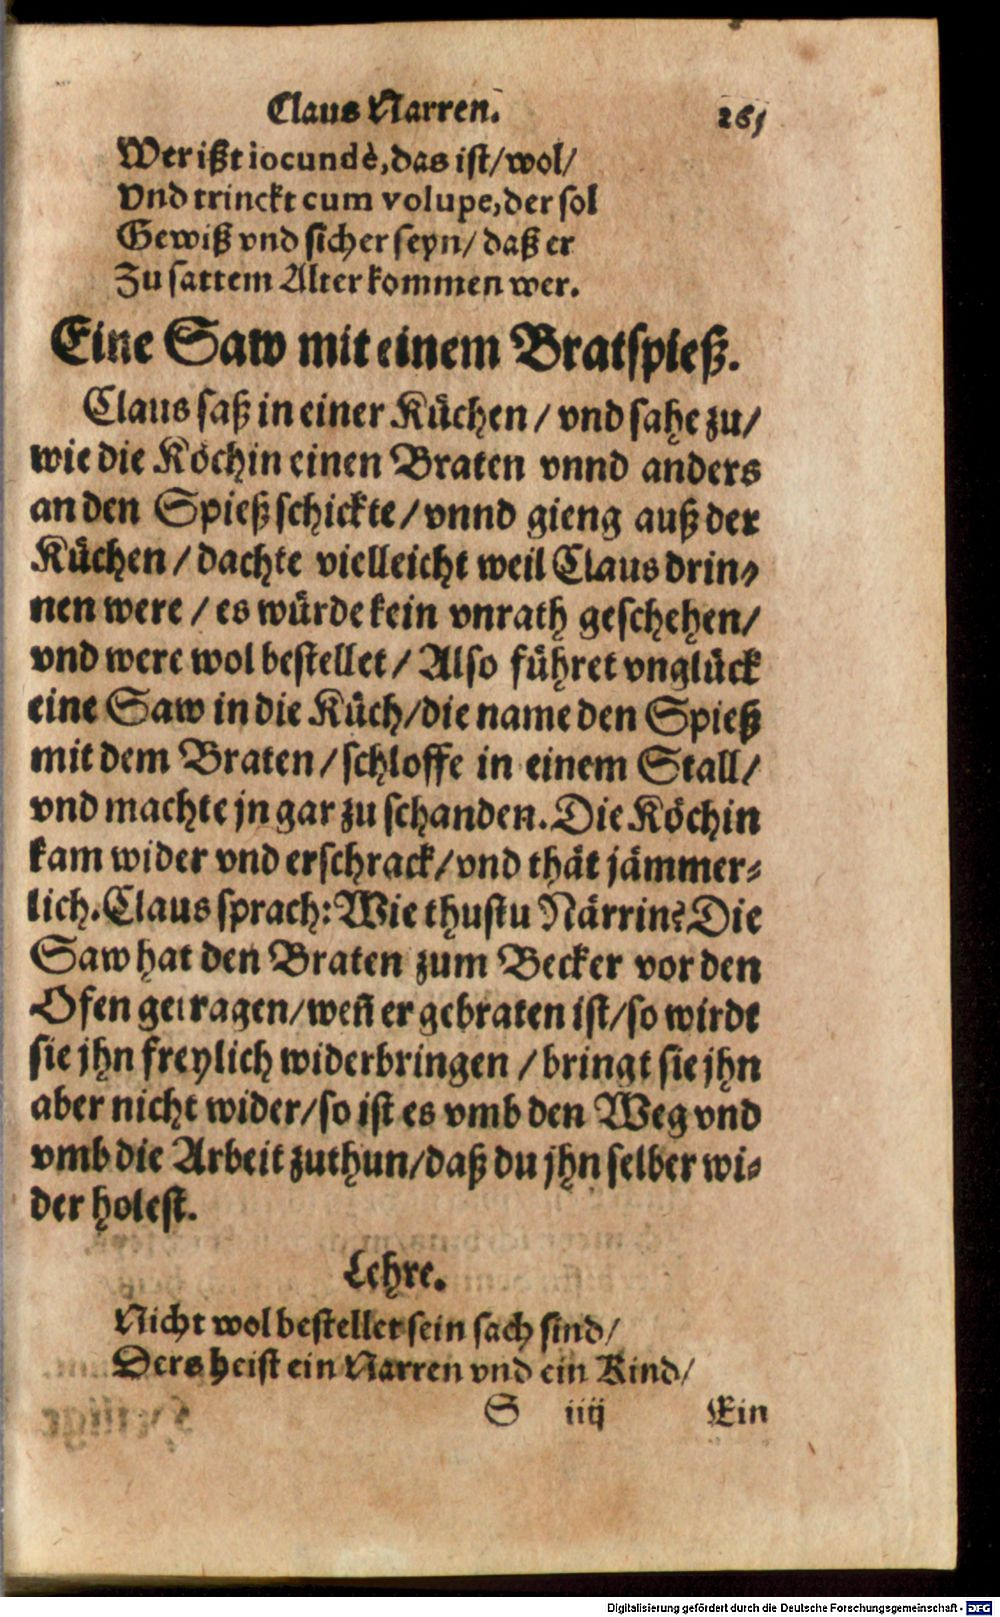 Claus Narren. 261
Wer ißt iocundè, das ist/ wol/
Vnd trinckt cum volupe, der sol
Gewiß vnd sicher seyn/ daß er
Zu sattem Alter kommen wer.
Eine Saw mit einem Bratspieß.
Claus saß in einer Küchen / vnd sahe zu/
wie die Köchin einen Braten vnnd anders
an den Spieß schickte / vnnd gieng auß der
Küchen / dachte vielleicht weil Claus drin-
nen were / es würde kein vnrath geschehen/
vnd were wol bestellet / Also führet vnglück
eine Saw in die Küch/ die name den Spieß
mit dem Braten / schloffe in einem Stall/
vnd machte jn gar zu schanden. Die Köchin
kam wider vnd erschrack/ vnd thät jämmer-
lich. Claus sprach: Wie thustu Närrin? Die
Saw hat den Braten zum Becker vor den
Ofen getragen/ weñ er gebraten ist/ so wirdt
sie jhn freylich widerbringen / bringt sie jhn
aber nicht wider/ so ist es vmb den Weg vnd
vmb die Arbeit zuthun/ daß du jhn selber wi-
der holest.
Lehre.
Nicht wol bestellet sein sach sind/
Ders heist ein Narren vnd ein Kind/
S iiij Ein
Digitalisierung gefördert durch die Deutsche Forschungsgemeinschaft - DFG